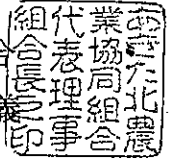 あきた北農
業協同組合
代表理事
組合長之印